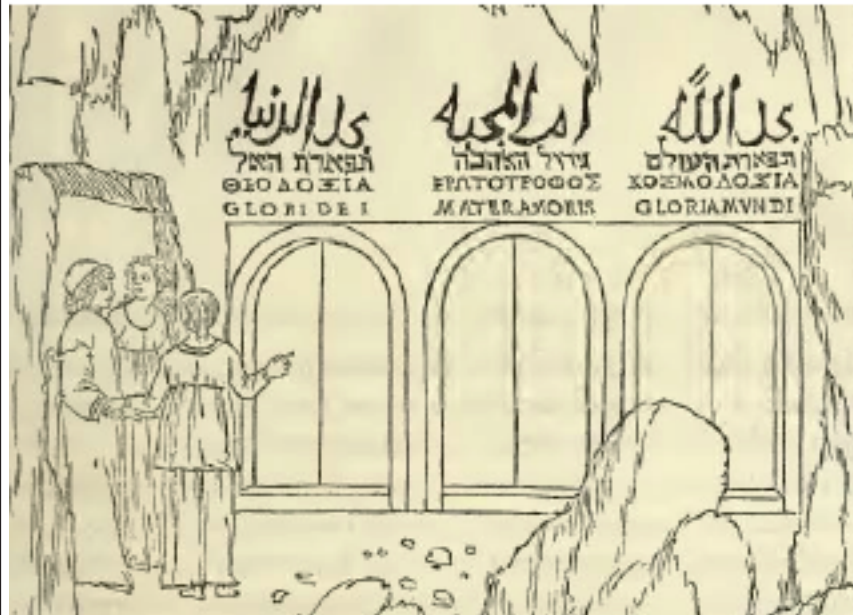 مجد الدنيا
תפארת האל
ΘΕΟΔΟΞΙΑ
GLORI DEI
ام المحبه
גידול האהבה
ΕΡΩΤΟΤΡΟΦΟΣ
MATER AMORIS
مجد الله
תפארת העולם
ΚΟΣΜΟΔΟΞΙΑ
GLORIA MVNDI